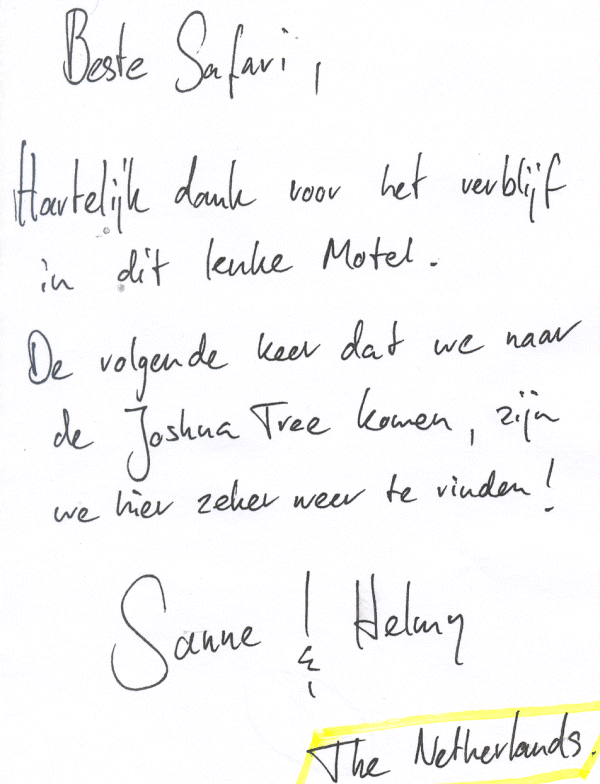 Beste Safari,
Hartelijk dank voor het verblijf
in dit leuke Motel.
De volgende keer dat we naar
de Joshua Tree komen, zijn
we hier zeker weer te vinden!
Sanne & Helmy
The Netherlands.